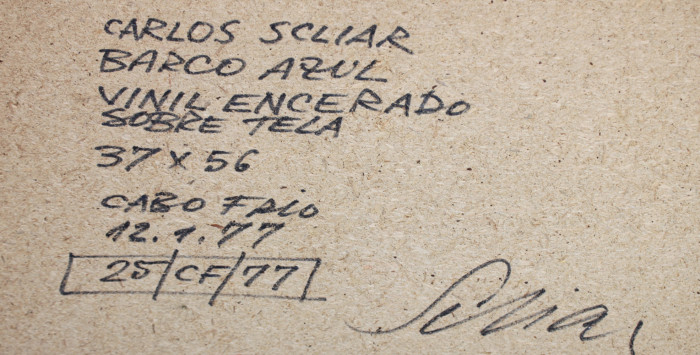 CARLOS SCLIAR
BARCO AZUL
VINIL ENCERADO
SOBRE TELA
37 x 56
CABO FRIO
12.1.77
25/CF/77
Scliar